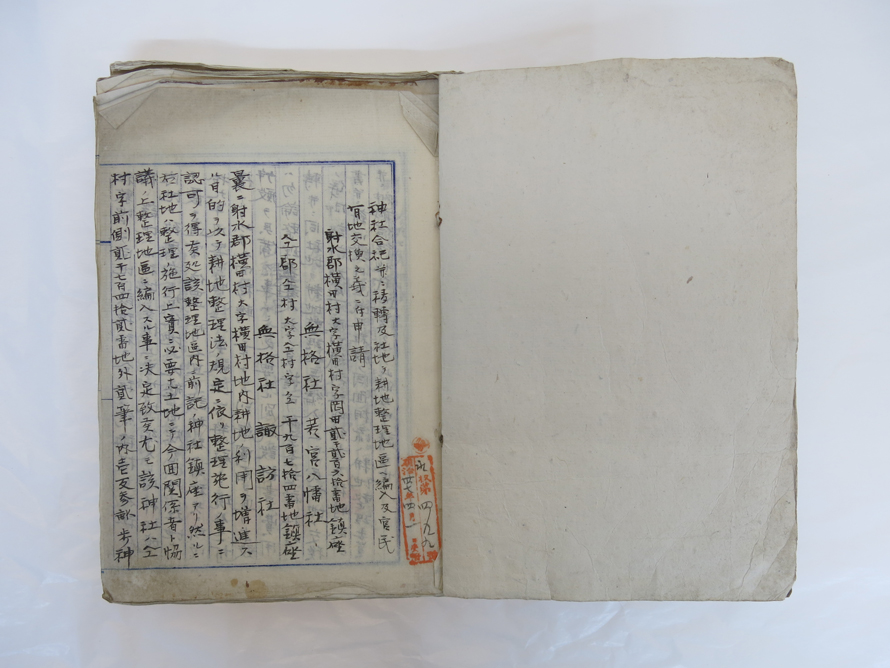 神社合祀并ニ移轉及社地ヲ耕地整理地區ニ編入及官民
有地交換之義ニ付申請
射水郡横田村大字横田村字岡田貳千貳百六拾番地鎮座
無格社 若宮八幡社
仝郡仝村大字仝村字仝 千九百七拾四番地鎮座
無格社 諏訪社
曩ニ射水郡横田村大字横田村地内耕地ノ利用ヲ増進スル
目的ヲ以テ耕地整理法ノ規定ニ依リ整理施行ノ事ニ
認可ヲ得有之処該整理地區内ニ前記ノ神社鎮座アリ然ルニ
右社地ハ整理施行上實ニ必要ナル土地ニテ今回関係者ト協
議ノ上整理地區ニ編入スル事ニ決定致候尤モ該神社ハ仝
村字前側貳千七百四拾貳番地外貳筆ノ内壹反参畝歩神
第四九九